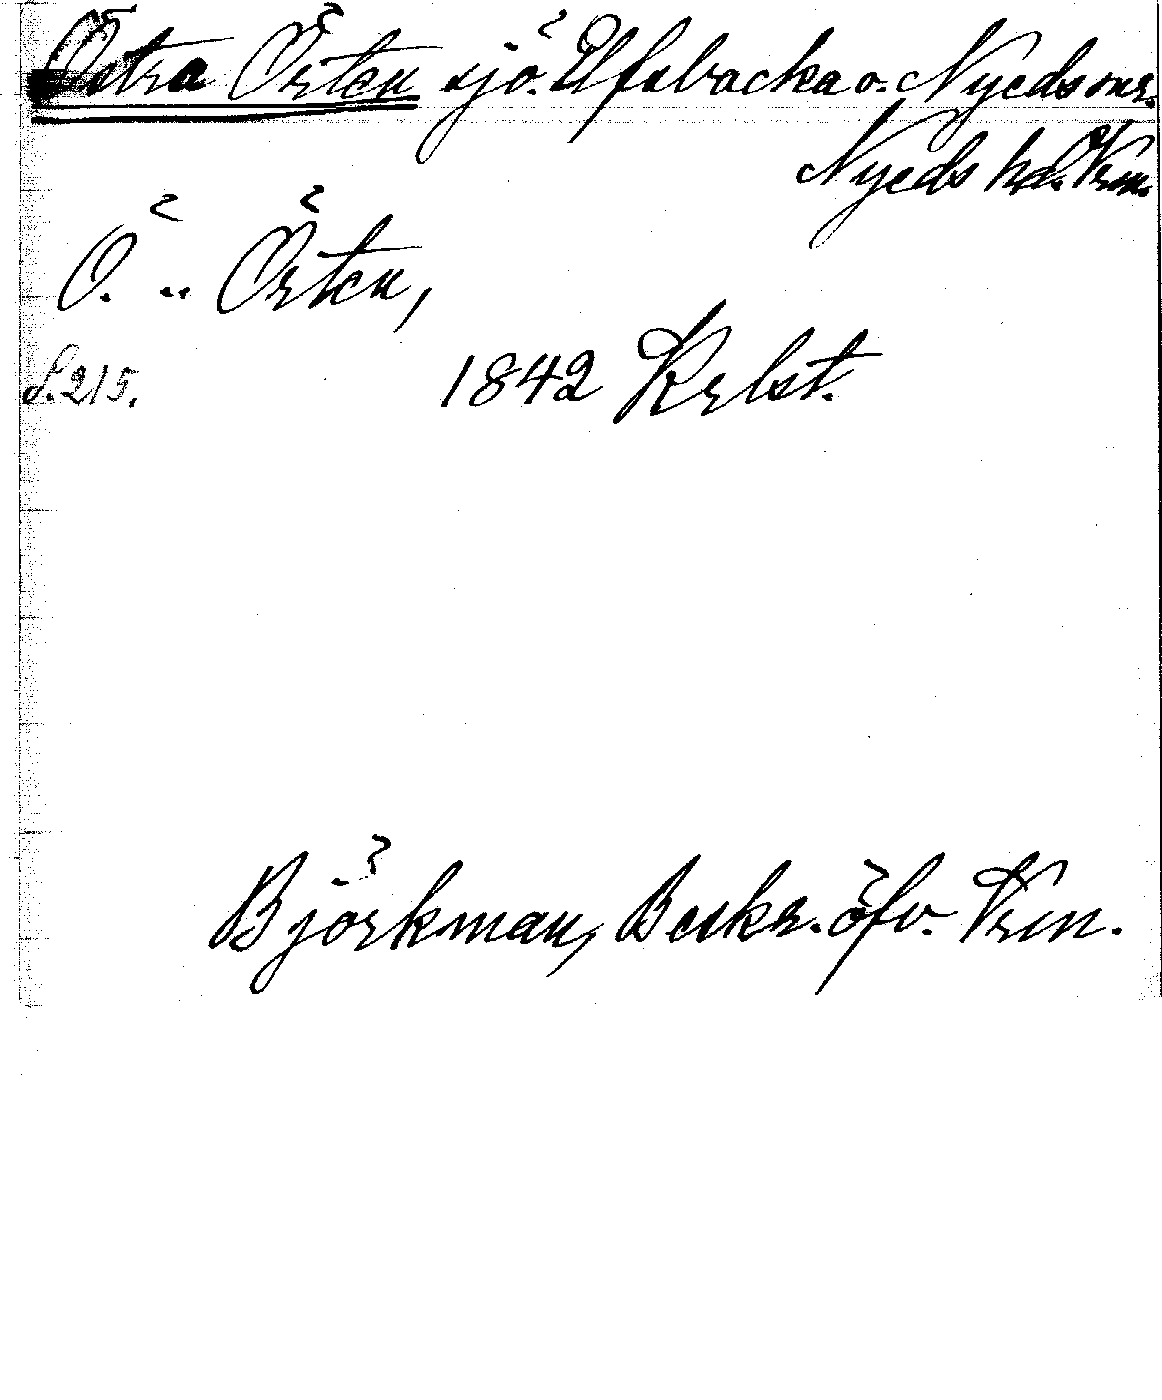 Östra Örten sjö. Elfsbacka o. Nyeds snr.
Nyeds hd. Vrm.
Ö. „ Örten,
S. 215. 1842 Krlst.
Björkman, Beskr. öfv. Vrm.